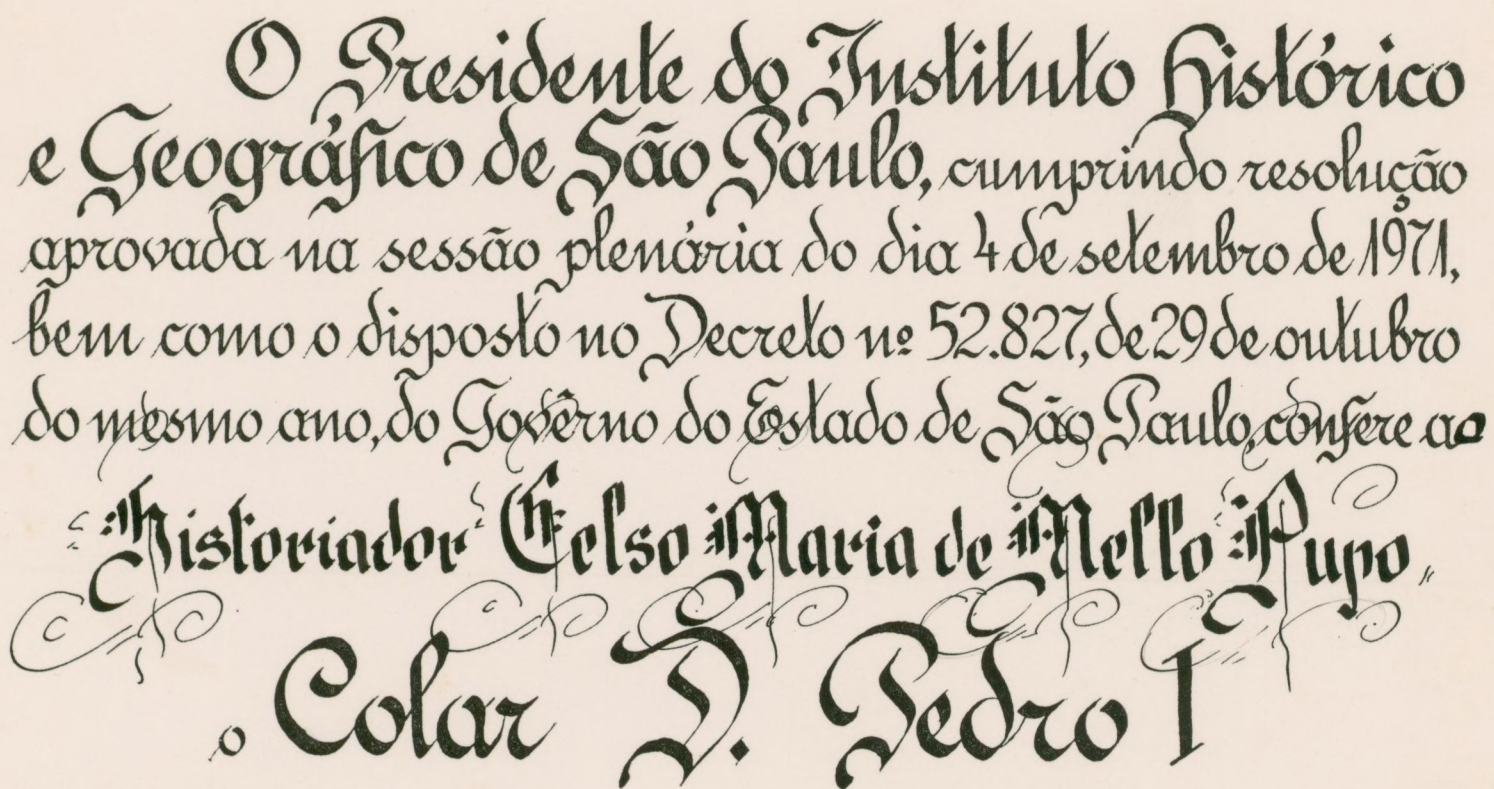 O Presidente do Instituto Histórico
e Geográfico de São Paulo, cumprindo resolução
aprovada na sessão plenária do dia 4 de setembro de 1971,
bem como o disposto no Decreto nº 52.827, de 29 de outubro
do mesmo ano, do Govêrno do Estado de São Paulo, confere ao
Historiador Celso Maria de Mello Pupo,
o Colar D. Pedro I